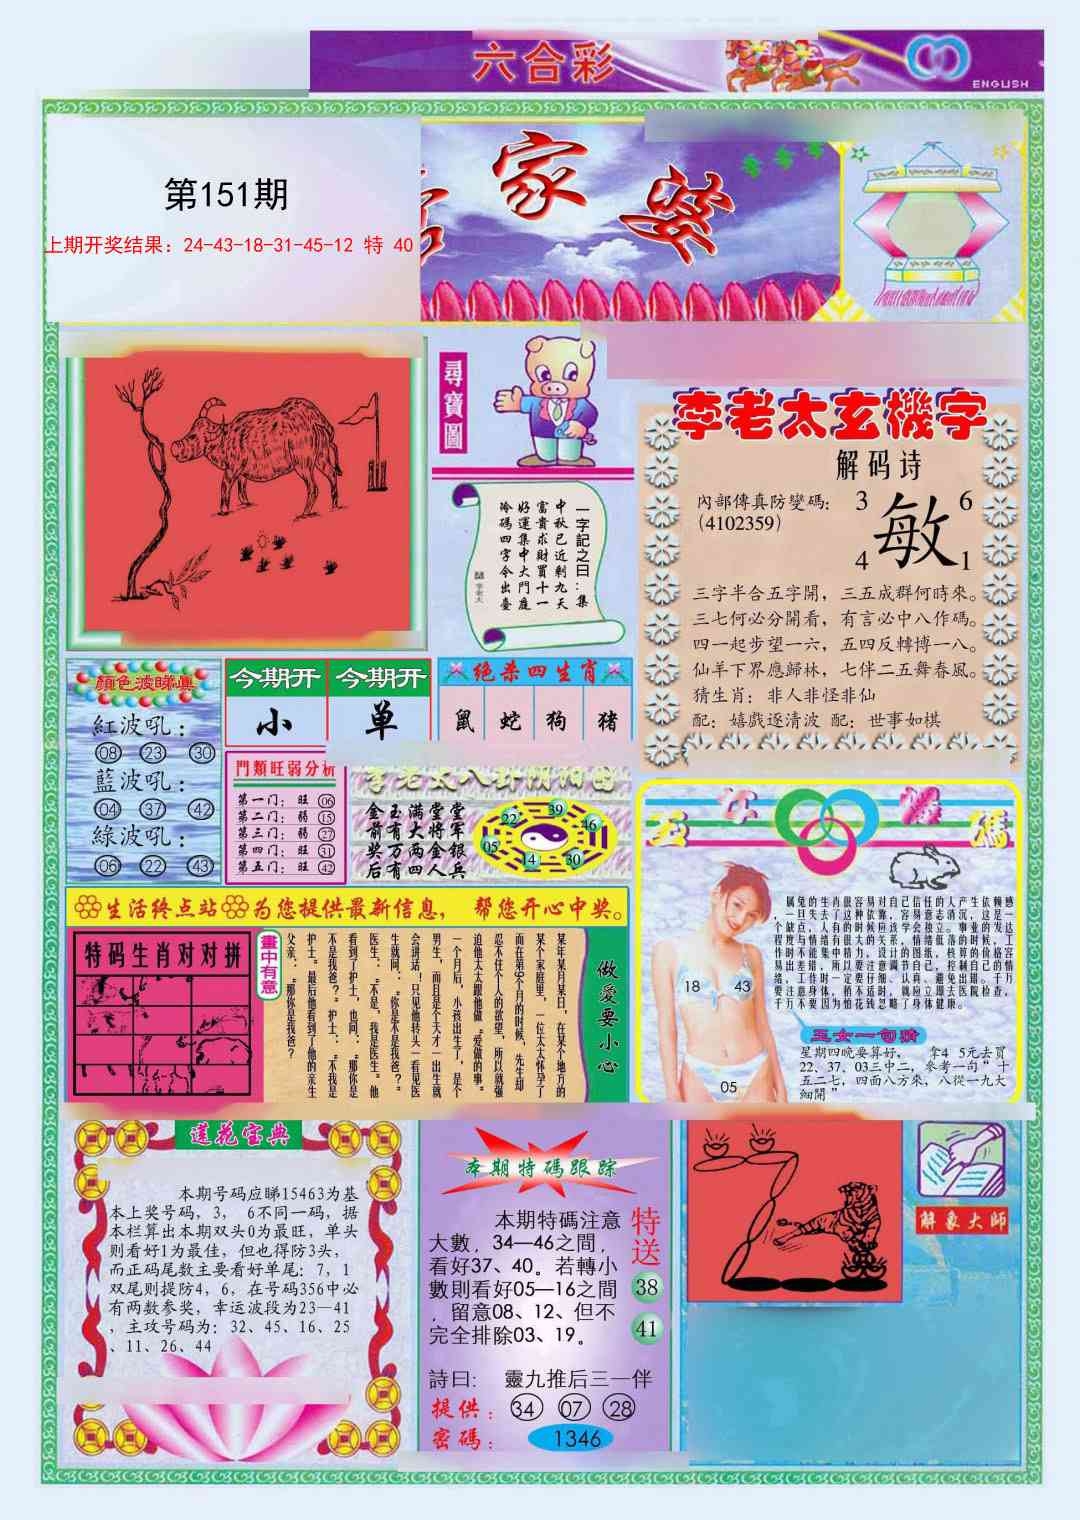 六合彩
ENGLISH
第151期
上期开奖结果: 24-43-18-31-45-12 特 40
家婆
尋寶圖
一字記之曰:集
中秋已近剩九天
富貴求財買十一
好運集中大門庭
冷碼四字令出臺
李老太玄機字
解码诗
內部傳真防變碼:
(4102359)
3 6
敏
4 1
三字半合五字開，三五成群何時來。
三七何必分開看，有言必中八作碼。
四一起步望一六，五四反轉博一八。
仙羊下界應歸林，七伴二五舞春風。
猜生肖: 非人非怪非仙
配: 嬉戲逐清波 配: 世事如棋
顏色波睇真
紅波吼:
08 23 30
藍波吼:
04 37 42
綠波吼:
06 22 43
今期开 今期开
小 单
绝杀四生肖
鼠 蛇 狗 猪
門類旺弱分析
第一门: 旺 06
第二门: 弱 15
第三门: 弱 27
第四门: 旺 31
第五门: 旺 42
李老太八卦阴阳图
金玉满堂堂
前有大将军
奖万两金银
后有四人兵
22 39 46
05 14 30
生活终点站 为您提供最新信息， 帮您开心中奖。
特码生肖对对拼
畫中有意
做愛要小心
某年某月某日，在某个地方的
某个家庭里，一位太太怀孕了
而在第9个月的时候，先生却
忍不住个人的欲望，所以就强
迫他太太跟他做“爱做的事”
一个月后，小孩出生了，是个
男生，而且是个天才一出生就
会讲话！只见他转头一看见医
生就问：“你是不是我爸？”
医生：“不是，我是医生。”他
看到了护士，也问：“那你是
不是我爸？”护士：“不我是
护士。”最后他看到了他的亲生
父亲：“那你是我爸？
五女传碼
属兔的生肖很容易对自己信任的人产生依赖感
，一旦失去了这种依靠，容易意志消沉，这是一
个缺点，人有的时候应该学会独立。事业的发达
程度与情绪有很大的关系，情绪低落的时候，工
作时不能集中精力，设计的图纸，核算的价格容
易出差错，所以要注意调节自己，控制自己的情
绪，工作时一定要仔细、认真，避免出错。千万
要注意身体，稍不适时，就应立即去医院检查，
千万不要因为怕花钱忽略了身体健康。
18 43
05
玉女一句猜
星期四晚要算好， 拿4 5元去買
22、37、03三中二，參考一句“十
五二七，四面八方來，八從一九大
細開”
莲花宝典
本期号码应睇15463为基
本上奖号码，3， 6不同一码，据
本栏算出本期双头0为最旺，单头
则看好1为最佳，但也得防3头，
而正码尾数主要看好单尾: 7，1
双尾则提防4，6，在号码356中必
有两数参奖，幸运波段为23—41
，主攻号码为: 32、45、16、25
、11、26、44
本期特碼跟踪
本期特碼注意
大數，34—46之間，
看好37、40。若轉小
數則看好05—16之間
，留意08、12、但不
完全排除03、19。
特送
38
41
詩曰: 靈九推后三一伴
提供: 34 07 28
密碼: 1346
解象大師